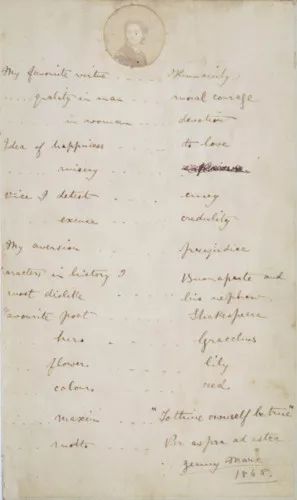 My favorite virtue . . . . . Humanity
. . . . quality in man . . . . moral courage
in woman . . . . devotion
Idea of happiness . . . . . to love
misery . . . .
vice I detest . . . . envy
excuse . . . . credulity
My aversion . . . . prejudice
characters in history I Buonaparte and
most dislike . . . . his nephew
favourite poet . . . . Shakespeare
hero . . . . Gracchus
flower . . . . lily
colour . . . . red
maxim . . . . "To thine ownself be true"
motto . . . . Per aspera ad astra
Jenny Marx
1865.